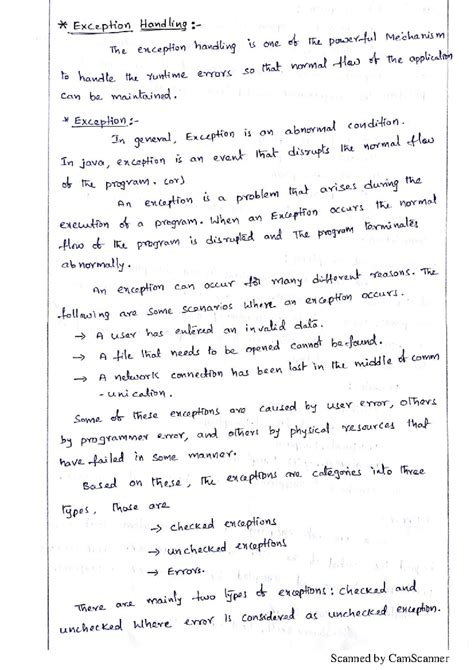 * Exception Handling :-
The exception handling is one of the powerful Mechanism
to handle the runtime errors so that normal flow of the application
can be maintained.
* Exception :-
In general, Exception is an abnormal condition.
In java, exception is an event that disrupts the normal flow
of the program. (or)
An exception is a problem that arises during the
execution of a program. When an Exception occurs the normal
flow of the program is disrupted and The program terminates
abnormally.
An exception can occur for many different reasons. The
following are some scenarios where an exception occurs.
→ A user has entered an invalid data.
→ A file that needs to be opened cannot be found.
→ A network connection has been lost in the middle of comm
- unication.
Some of these exceptions are caused by user error, others
by programmer error, and others by physical resources that
have failed in some manner.
Based on these, The exceptions are categories into three
types, Those are
→ checked exceptions
→ unchecked exceptions
→ Errors.
There are mainly two types of exceptions : checked and
unchecked where error is considered as unchecked exception.
Scanned by CamScanner